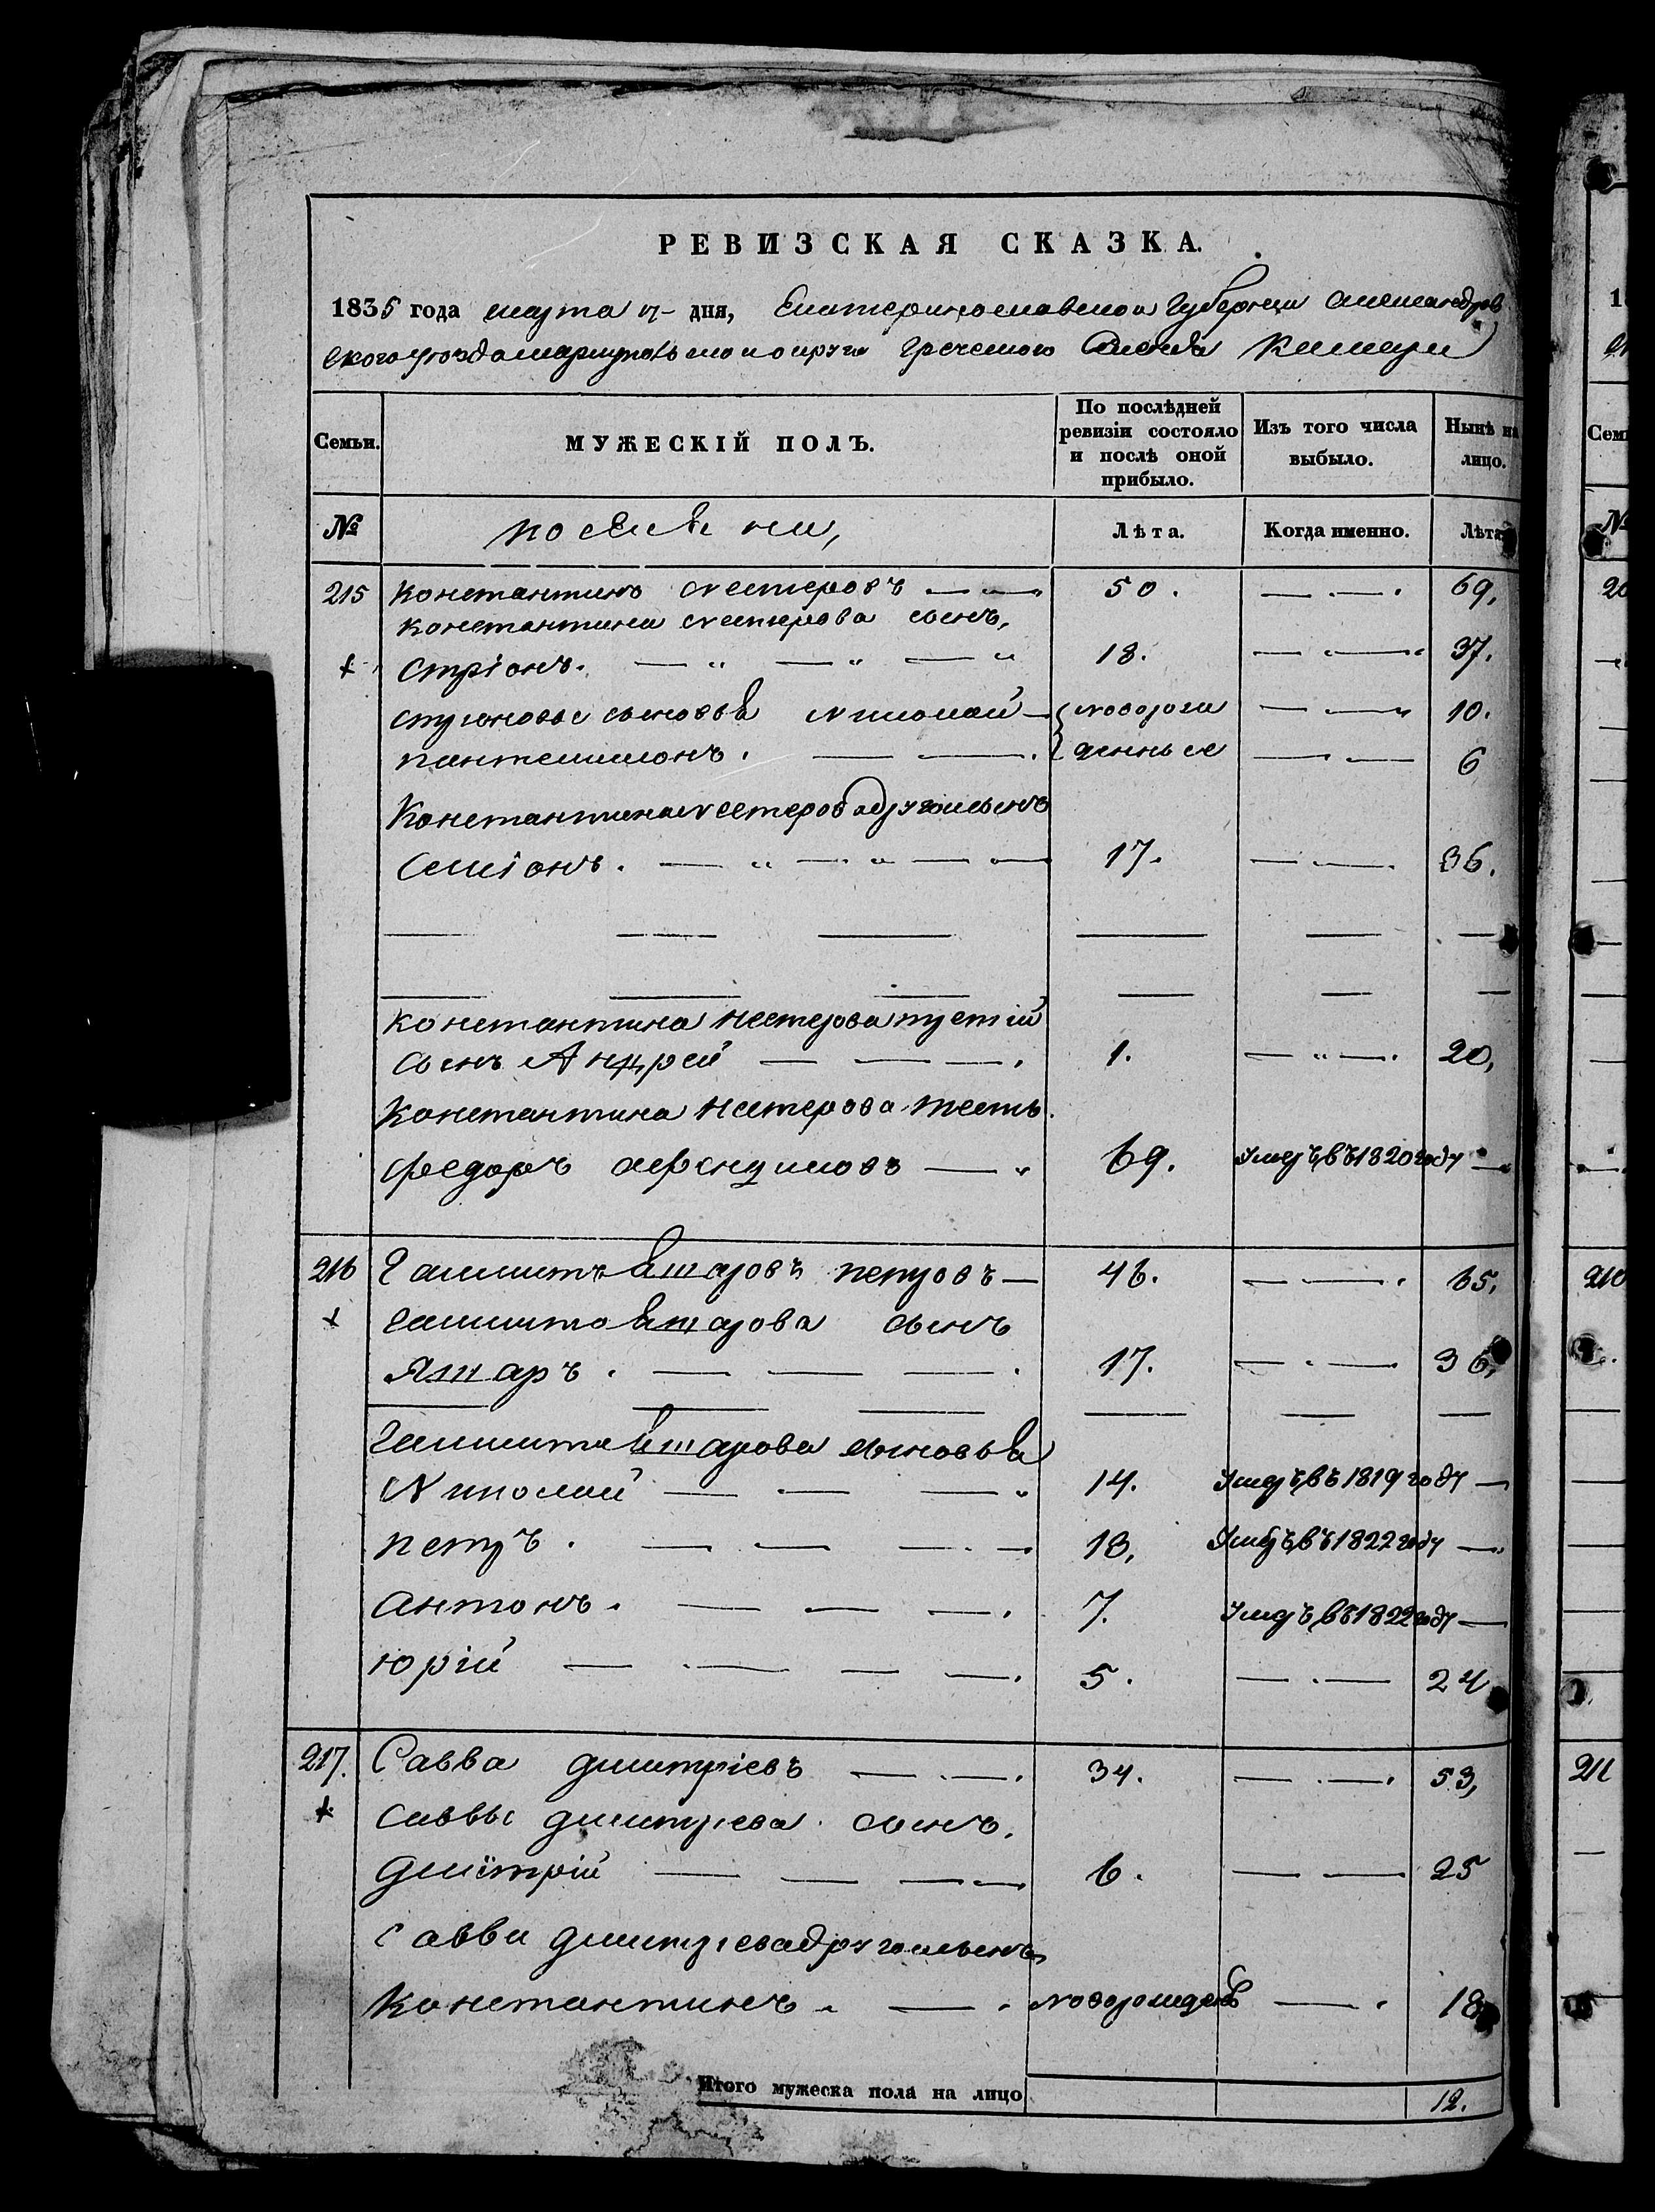 РЕВИЗСКАЯ СКАЗКА.
1835 года марта дня, Екатеринославской Губернии Александров
ского уѣзда мариупольского округа греческого
Семьи.
МУЖЕСКІЙ ПОЛЪ.
По послѣдней ревизіи состояло и послѣ оной прибыло.
Изъ того числа выбыло.
Нынѣ на лицо.
№
поселяни,
Лѣта.
Когда именно.
Лѣта
215 Константинъ Нестеровъ 50. 69,
Константина Нестерова сынъ,
+ Стріонъ. 18. 37.
стрионовы сыновья Николай новорож 10.
пантелимонъ. денные 6
Константина Нестерова другой сынъ
Симіонъ. 17. 36.
Константина Нестерова третій
сынъ Андрей 1. 20,
Константина Нестерова тесть.
Федоръ 69. Умеръ въ 1820 году
216 петровъ 46. 65,
+ сынъ
Яшаръ. 17. 36,
сыновья
Николай 14. Умеръ въ 1819 году
петръ. 13, Умеръ въ 1822 году
Антонъ. 7. Умеръ въ 1822 году
Юрій 5. 24
217. Савва Дмитріевъ 34. 53,
+ Саввы Дмитріева сынъ,
Дмитрій 6. 25
Саввы Дмитріева другой сынъ
Константинъ новорожден 18
Итого мужеска пола на лицо 12.